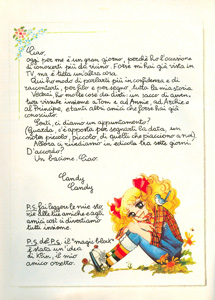 Ciao,
oggi per me è un gran giorno, perché ho l'occasione
di conoscerti più da vicino. Forse mi hai già vista in
TV, ma è tutta un'altra cosa.
Qui ho modo di parlarti più in confidenza e di
raccontarti, per filo e per segno, tutta la mia storia.
Vedrai ho molte cose da dirti: un sacco di avven-
ture vissute insieme a Tom e ad Annie, ad Archie e
al Principe, e tanti altri amici che forse hai già
conosciuto.
Senti, ci diamo un appuntamento?
(Guarda, c'è apposta per segnarti la data, un
notes piccolo, piccolo, di quelli che piacciono a noi)
Allora ci rivediamo in edicola tra sette giorni.
D'accordo?
Un bacione. Ciao.
Candy
Candy
P.S. fai leggere le mie sto-
rie alle tue amiche e agli
amici così ci divertiamo
tutti insieme.
P.S. del P.S. il "magic block"
è stata un'idea
di Klin, il mio
amico orsetto.